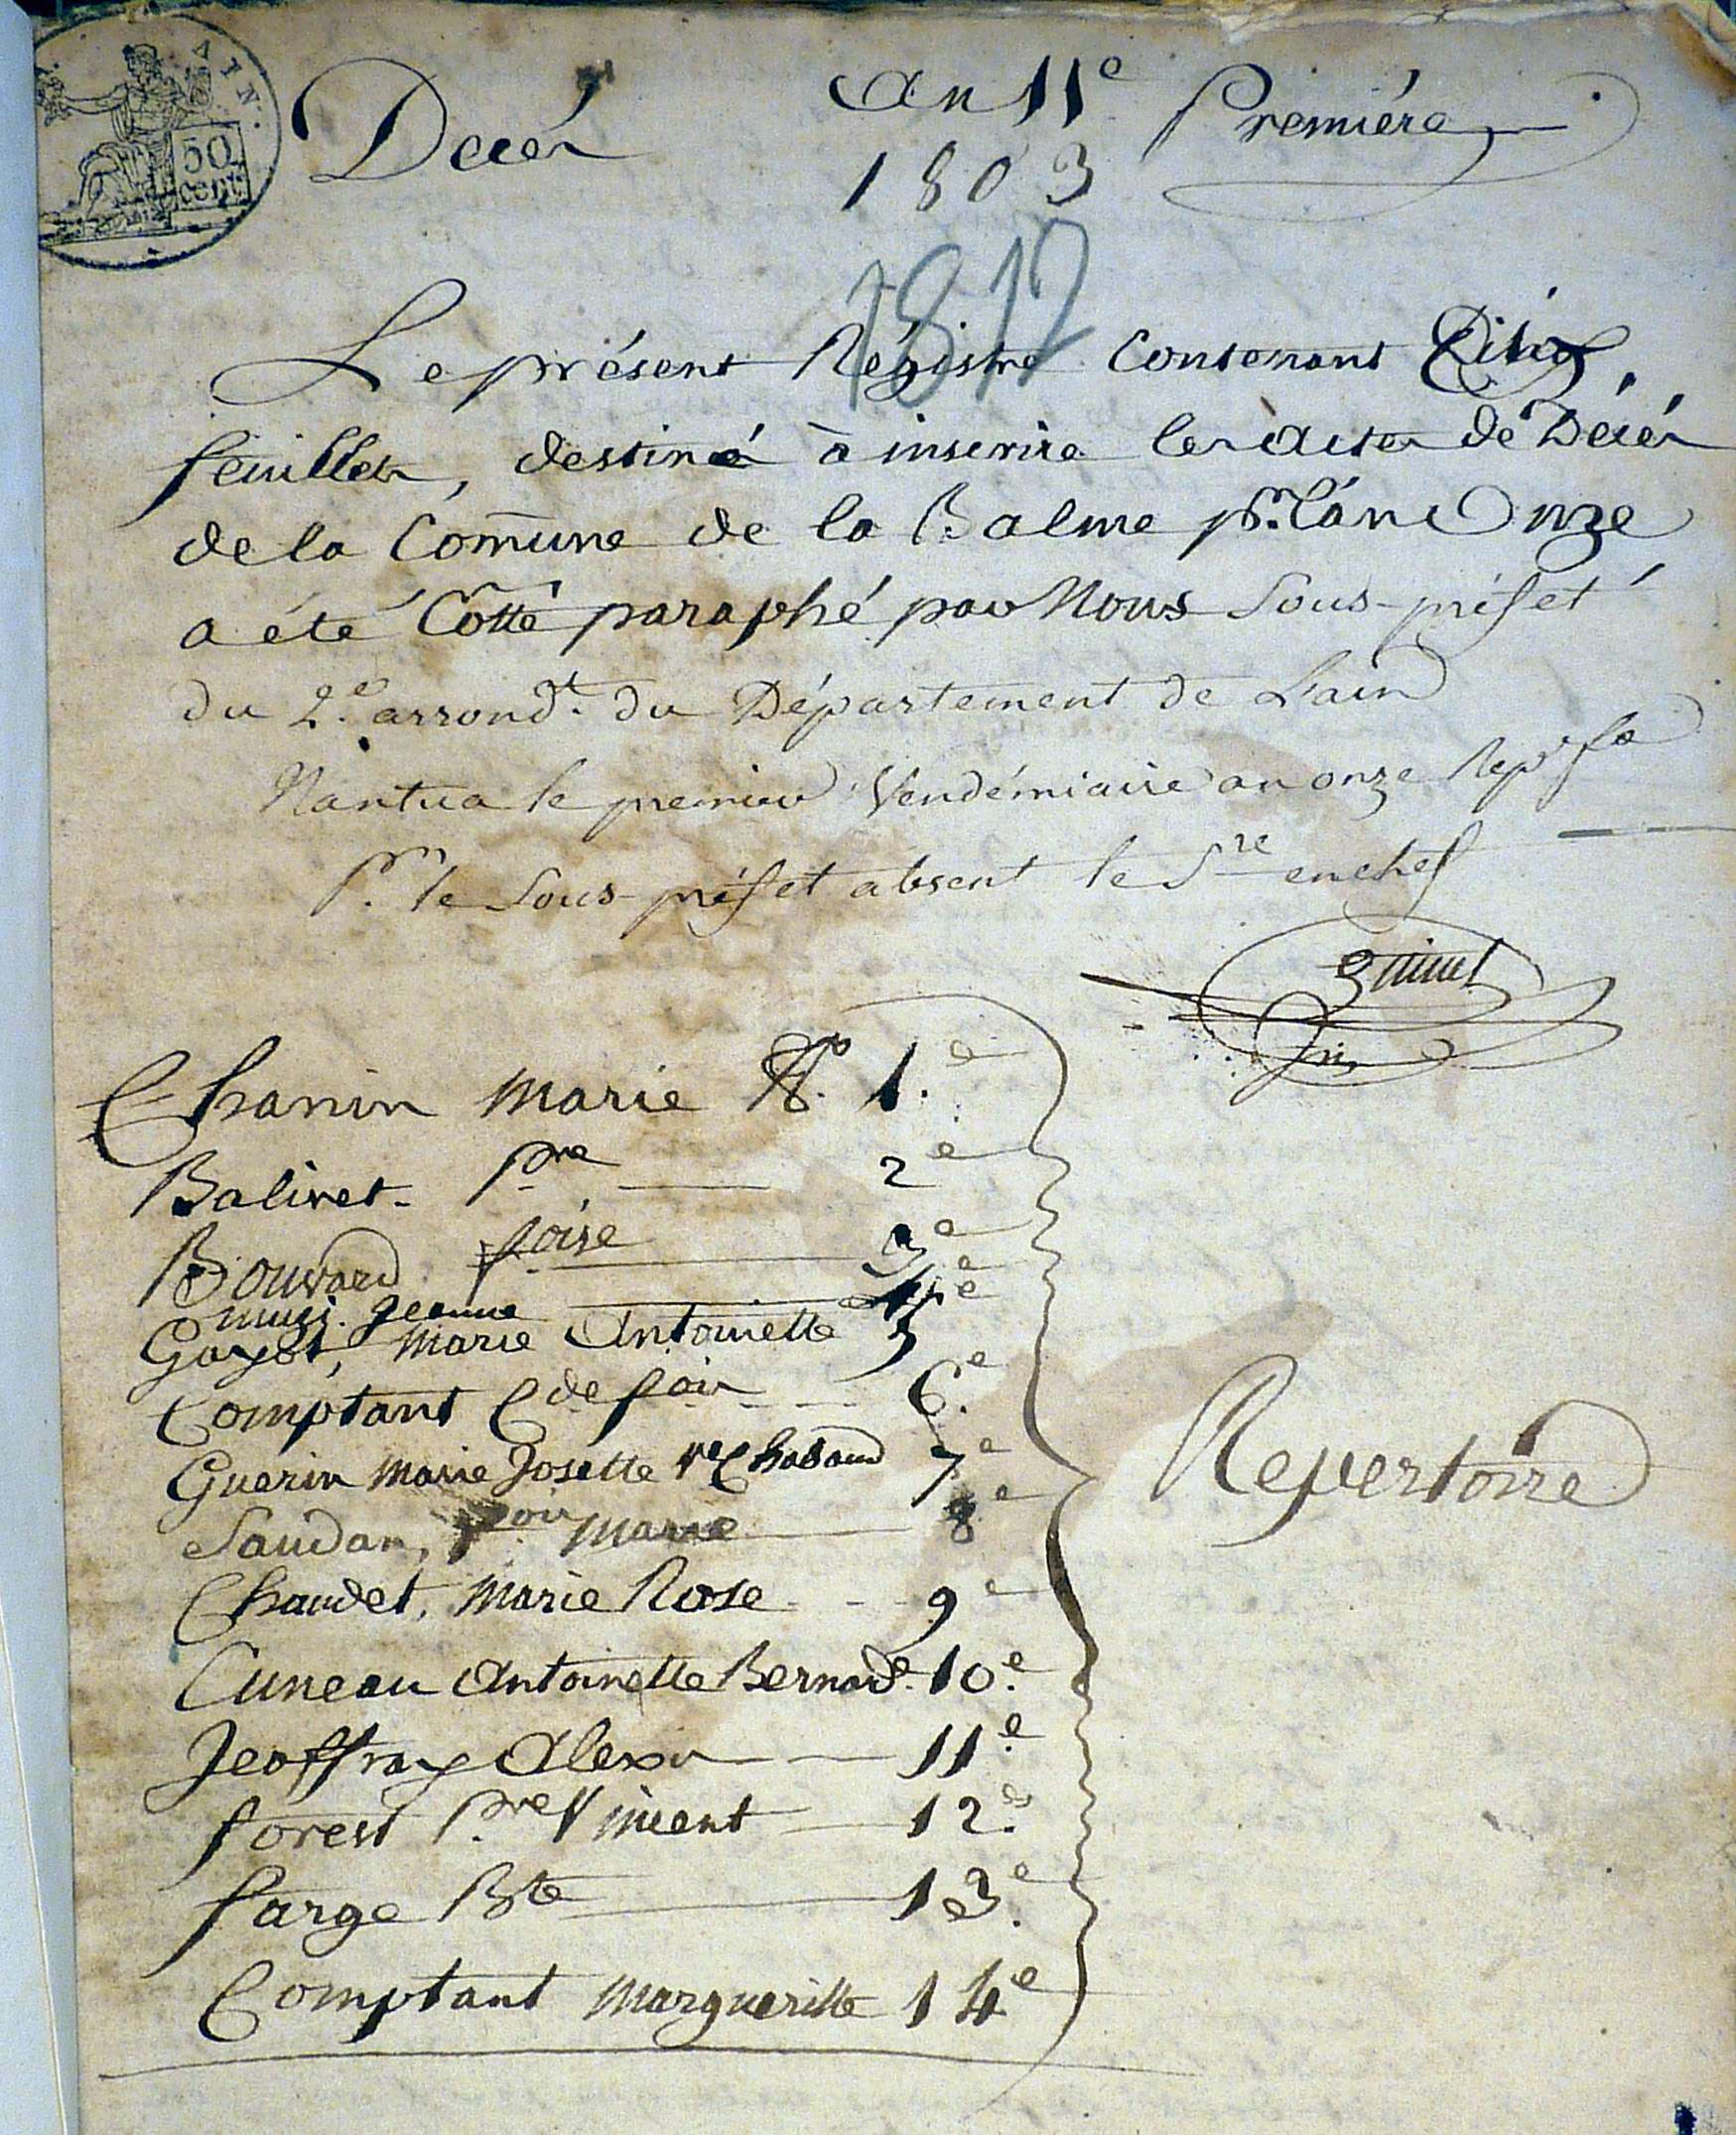 AIN.
50
cent.
Décés
an 11e
1803
Premiére
1812
Le présent Régistre Contenant
feuilles, destiné à inscrire les actes de Décés
de la Com̄une de la Balme pr. l'an Onze
a été Côtté paraphé par Nous Sous-préfet
du 2.e arrond.t du Département de L'ain
Nantua le premier Vendémiaire an onze
Pr. le Sous-préfet absent le Sre en chef
Chanin Marie No. 1.e
Balivet Pre 2e
Bouvard foise 3e
Jeanne 4e
Goyot, Marie Antoinette 5
Comptant Cde fois 6.e
Guerin Marie Josette Ve Chabaud 7e
Saudan, fois Marie 8e
Chaudet, Marie Rose 9e
Cuneau Antoinette Bernarde 10.e
Jeoffray Alexis 11.e
forest Pre Vincent 12.e
farge Bte 13.e
Comptant Margueritte 14e
Repertoire